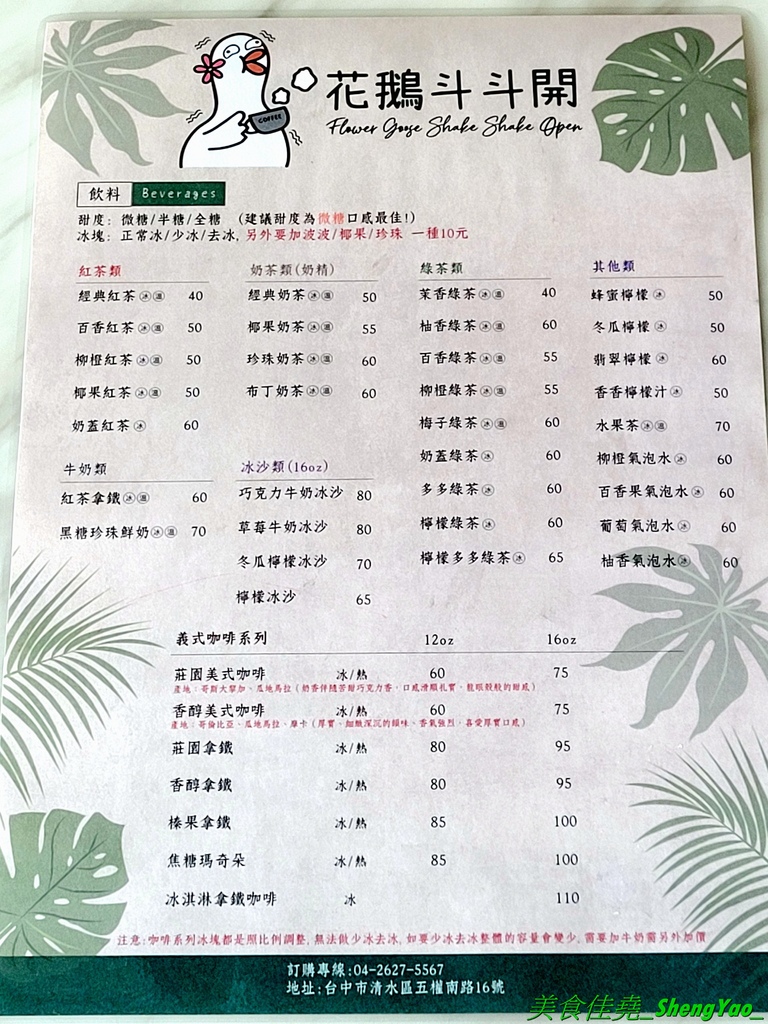 花鵝斗斗開
Flower Goose Shake Shake Open
COFFEE
飲料 Beverages
甜度: 微糖/半糖/全糖 (建議甜度為微糖口感最佳!)
冰塊: 正常冰/少冰/去冰, 另外要加波波/椰果/珍珠 一種10元
紅茶類
經典紅茶 冰 溫 40
百香紅茶 冰 溫 50
柳橙紅茶 冰 溫 50
椰果紅茶 冰 溫 50
奶蓋紅茶 冰 60
奶茶類(奶精)
經典奶茶 冰 溫 50
椰果奶茶 冰 溫 55
珍珠奶茶 冰 溫 60
布丁奶茶 冰 溫 60
綠茶類
茉香綠茶 冰 溫 40
柚香綠茶 冰 溫 60
百香綠茶 冰 溫 55
柳橙綠茶 冰 溫 55
梅子綠茶 冰 溫 60
奶蓋綠茶 冰 60
多多綠茶 冰 60
檸檬綠茶 冰 60
檸檬多多綠茶 冰 65
其他類
蜂蜜檸檬 冰 50
冬瓜檸檬 冰 50
翡翠檸檬 冰 60
香香檸檬汁 冰 50
水果茶 冰 溫 70
柳橙氣泡水 冰 60
百香果氣泡水 冰 60
葡萄氣泡水 冰 60
柚香氣泡水 冰 60
牛奶類
紅茶拿鐵 冰 溫 60
黑糖珍珠鮮奶 冰 溫 70
冰沙類(16oz)
巧克力牛奶冰沙 80
草莓牛奶冰沙 80
冬瓜檸檬冰沙 70
檸檬冰沙 65
義式咖啡系列 12oz 16oz
莊園美式咖啡 冰/熱 60 75
產地:哥斯大黎加、瓜地馬拉(奶香伴隨苦甜巧克力香、口感滑順札實、龍眼殼般的甜感)
香醇美式咖啡 冰/熱 60 75
產地:哥倫比亞、瓜地馬拉、摩卡(厚實、細緻深沉的韻味、香氣強烈、喜愛厚實口感)
莊園拿鐵 冰/熱 80 95
香醇拿鐵 冰/熱 80 95
榛果拿鐵 冰/熱 85 100
焦糖瑪奇朵 冰/熱 85 100
冰淇淋拿鐵咖啡 冰 110
注意:咖啡系列冰塊都是照比例調整, 無法做少冰去冰, 如要少冰去冰整體的容量會變少, 需要加牛奶需另外加價
訂購專線:04-2627-5567
地址:台中市清水區五權南路16號
美食佳堯_ShengYao_